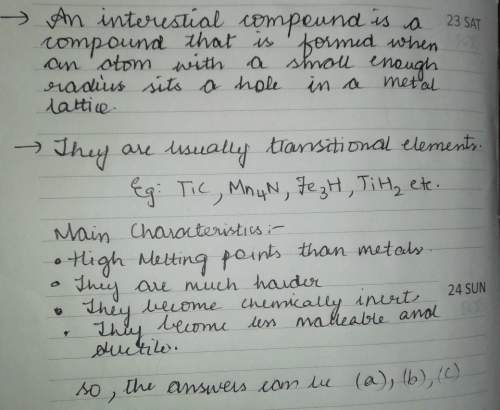 → An interestial compound is a 23 SAT
compound that is formed when
an atom with a small enough
radius sits a hole in a metal
lattice.
→ They are usually transitional elements.
Eg: TiC, Mn₄N, Fe₃H, TiH₂ etc.
Main Characteristics:-
• High Melting points than metals.
• They are much harder
• They become chemically inert. 24 SUN
• They become less malleable and
ductile.
so, the answers can be (a), (b), (c)